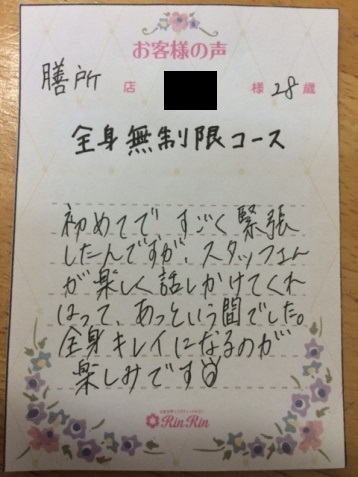 お客様の声
膳所 店 様 28 歳
全身無制限コース
初めてで、すごく緊張
したんですが、スタッフさん
が楽しく話しかけてくれ
はって、あっという間でした。
全身キレイになるのが
楽しみです
RinRin